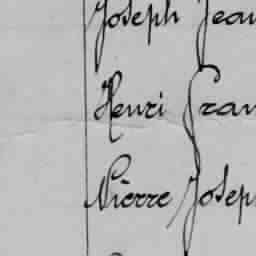 Joseph Jean
Henri Fran
Pierre Josep